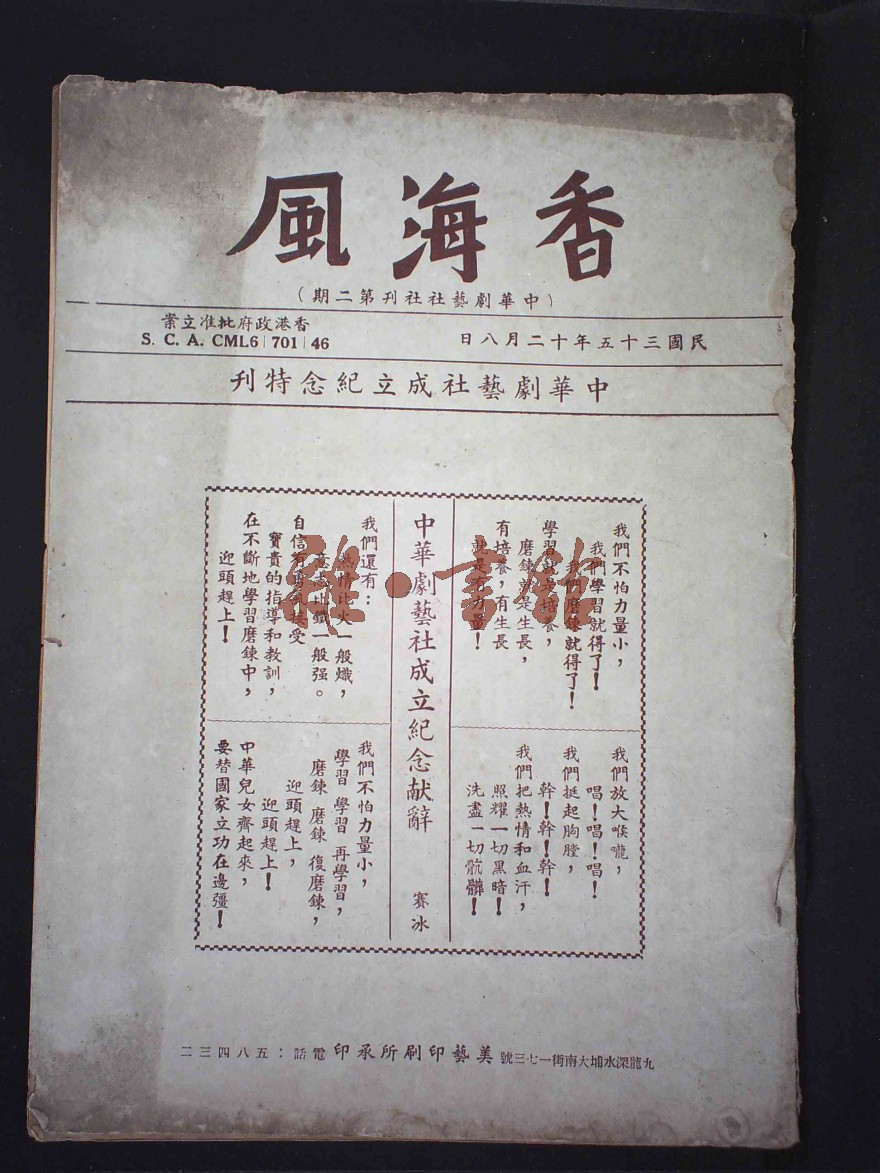 香海風
（中華劇藝社社刊第二期）
民國三十五年十二月八日
香港政府批准立案
S. C. A. CML6|701|46
中華劇藝社成立紀念特刊
我們不怕力量小，
我們學習就得了！
我們磨鍊就得了！
學習就是培養，
磨鍊就是生長，
有培養，有生長
就是有力量！
我們放大喉嚨，
唱！唱！唱！
我們挺起胸膛，
幹！幹！幹！
我們把熱情和血汗，
照耀一切黑暗！
洗盡一切骯髒！
中華劇藝社成立紀念献辭
賽冰
我們還有：
熱情比火一般熾，
意志比鐵一般强。
自信有勇氣接受
寶貴的指導和教訓，
在不斷地學習磨鍊中，
迎頭趕上！
我們不怕力量小，
學習 學習 再學習，
磨鍊 磨鍊 復磨鍊，
迎頭趕上，
迎頭趕上！
中華兒女齊起來，
要替國家立功在邊彊！
九龍深水埔大南街一七三號美藝印刷所承印電話：五八四三二